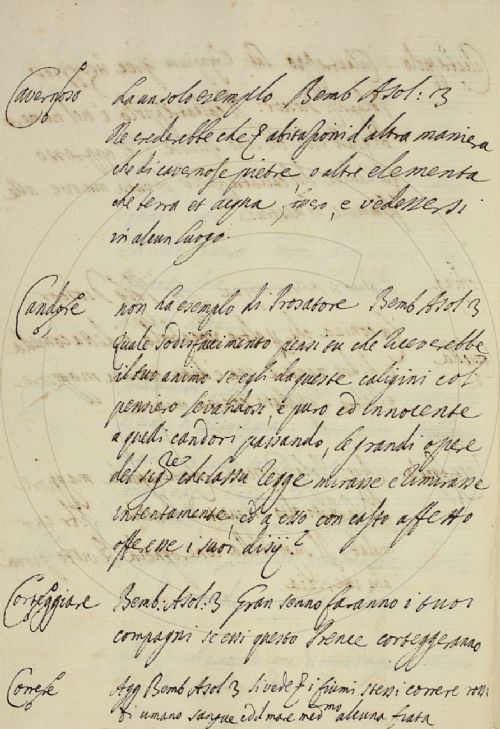 Cavernoso ha un solo esempio Bemb Asol: 3
Ne crederebbe che p abitationi d'altra maniera
che di cavenose pietre, o altre elementa
che terra et acqua, e vedessersi
in alcun luogo.
Candore non ha esempio di Prosatore Bemb Asol 3
quale soddisfacimento pensi tu che riceverebbe
il tuo animo se egli da queste caligini col
pensiero levandosi, e puro ed innocente
a quelli candori passando, le grandi opere
del sig.re che lassu regge mirasse e rimirasse
intentamente, ed a esso con casto affetto
offereve i suoi disij?
Corteggiare Bemb: Asol: 3 Gran senno faranno i tuoi
compagni se essi questo Prence corteggeranno
Correre Agg Bemb Asol 3 si vede p i fiumi stessi correre rossi
di umano sangue ed il mare med.mo alcuna fiata